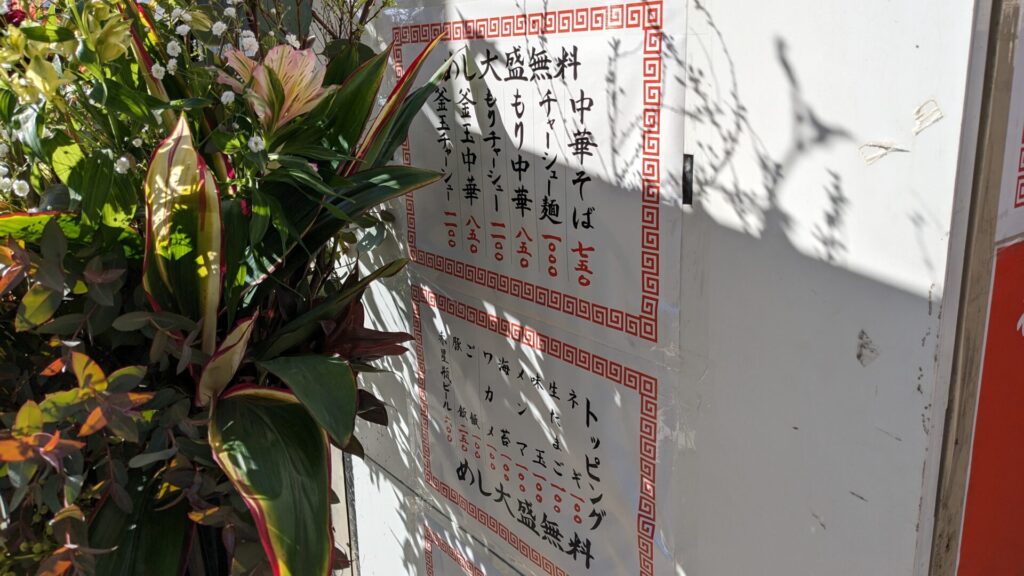 めし大盛無料
中華そば 七五〇
チャーシュー麺 一〇〇〇
もり中華 八五〇
もりチャーシュー
釜玉中華 八五〇
釜玉チャーシュー
トッピング
ネギ 一〇〇
生たまご
味玉 一〇〇
メンマ 一〇〇
海苔 一〇〇
ワカメ
ご飯
豚飯
瓶ビール
めし大盛無料